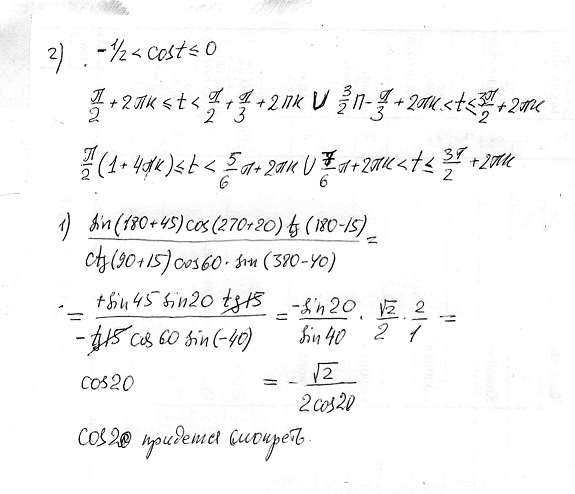 2) -1/2 < cos t ≤ 0
π/2 + 2πk ≤ t < π/2 + π/3 + 2πk ∪ 3/2 π - π/3 + 2πk < t ≤ 3π/2 + 2πk
π/2 (1 + 4k) ≤ t < 5/6 π + 2πk ∪ 7/6 π + 2πk < t ≤ 3π/2 + 2πk
1) sin(180+45)cos(270+20) tg(180-15) / ctg(90+15) cos60 · sin(320-40) =
= +sin45 sin20 tg15 / -tg15 cos60 sin(-40) = -sin20 / sin40 · √2/2 · 2/1 =
cos20 = - √2 / 2cos20
cos20 придется смотреть.